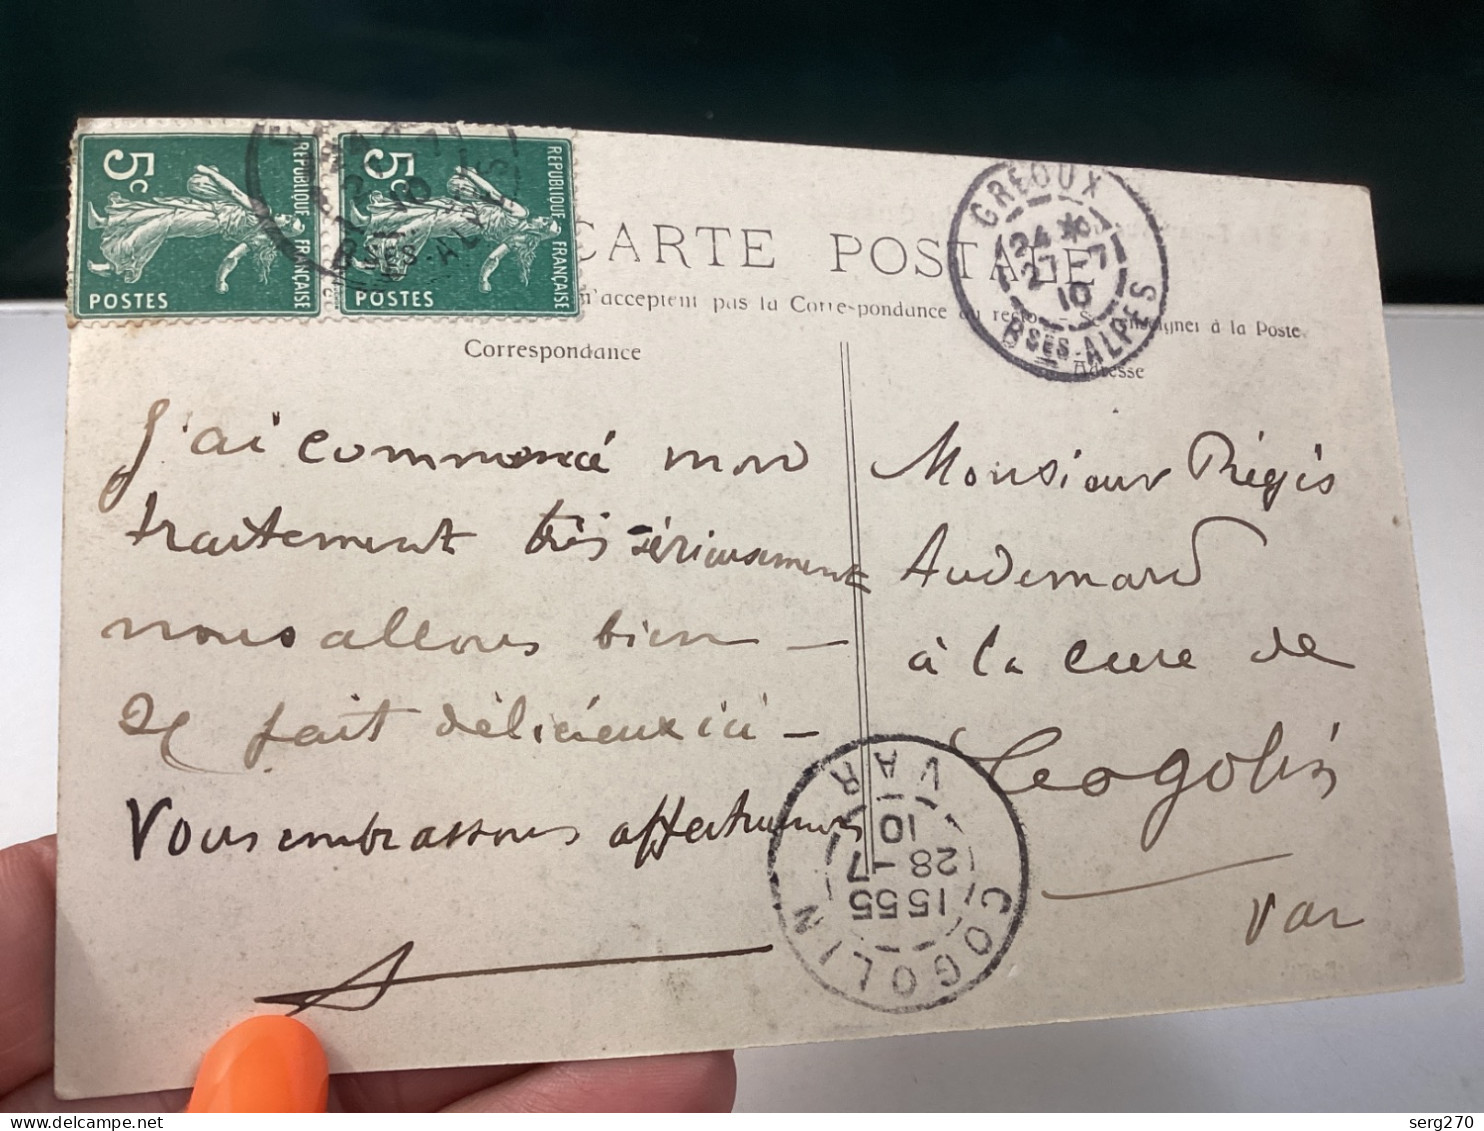 5c
REPUBLIQUE FRANÇAISE
POSTES
5c
REPUBLIQUE FRANÇAISE
POSTES
10
BSES-ALPES
CARTE POSTALE
GREOUX
24
27-7
10
BSES-ALPES
n'acceptent pas la Corre-pondance au recto - Se renseigner à la Poste.
Correspondance
Adresse
J'ai commencé mon
traitement très sérieusement
nous allons bien —
Il fait délicieux ici —
Vous embrassons affectueus
Monsieur Régis
Audemard
à la cure de
Cogolin
Var
COGOLIN
1555
28-7
10
VAR
delcampe.net
serg270